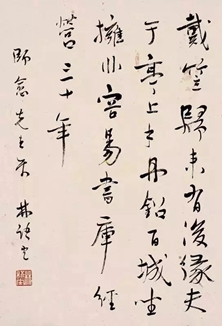 戴笠歸來有後緣夫
于亭上手丹鉛百城坐
擁非容易書庫經
營三十年
師念先生 林語堂